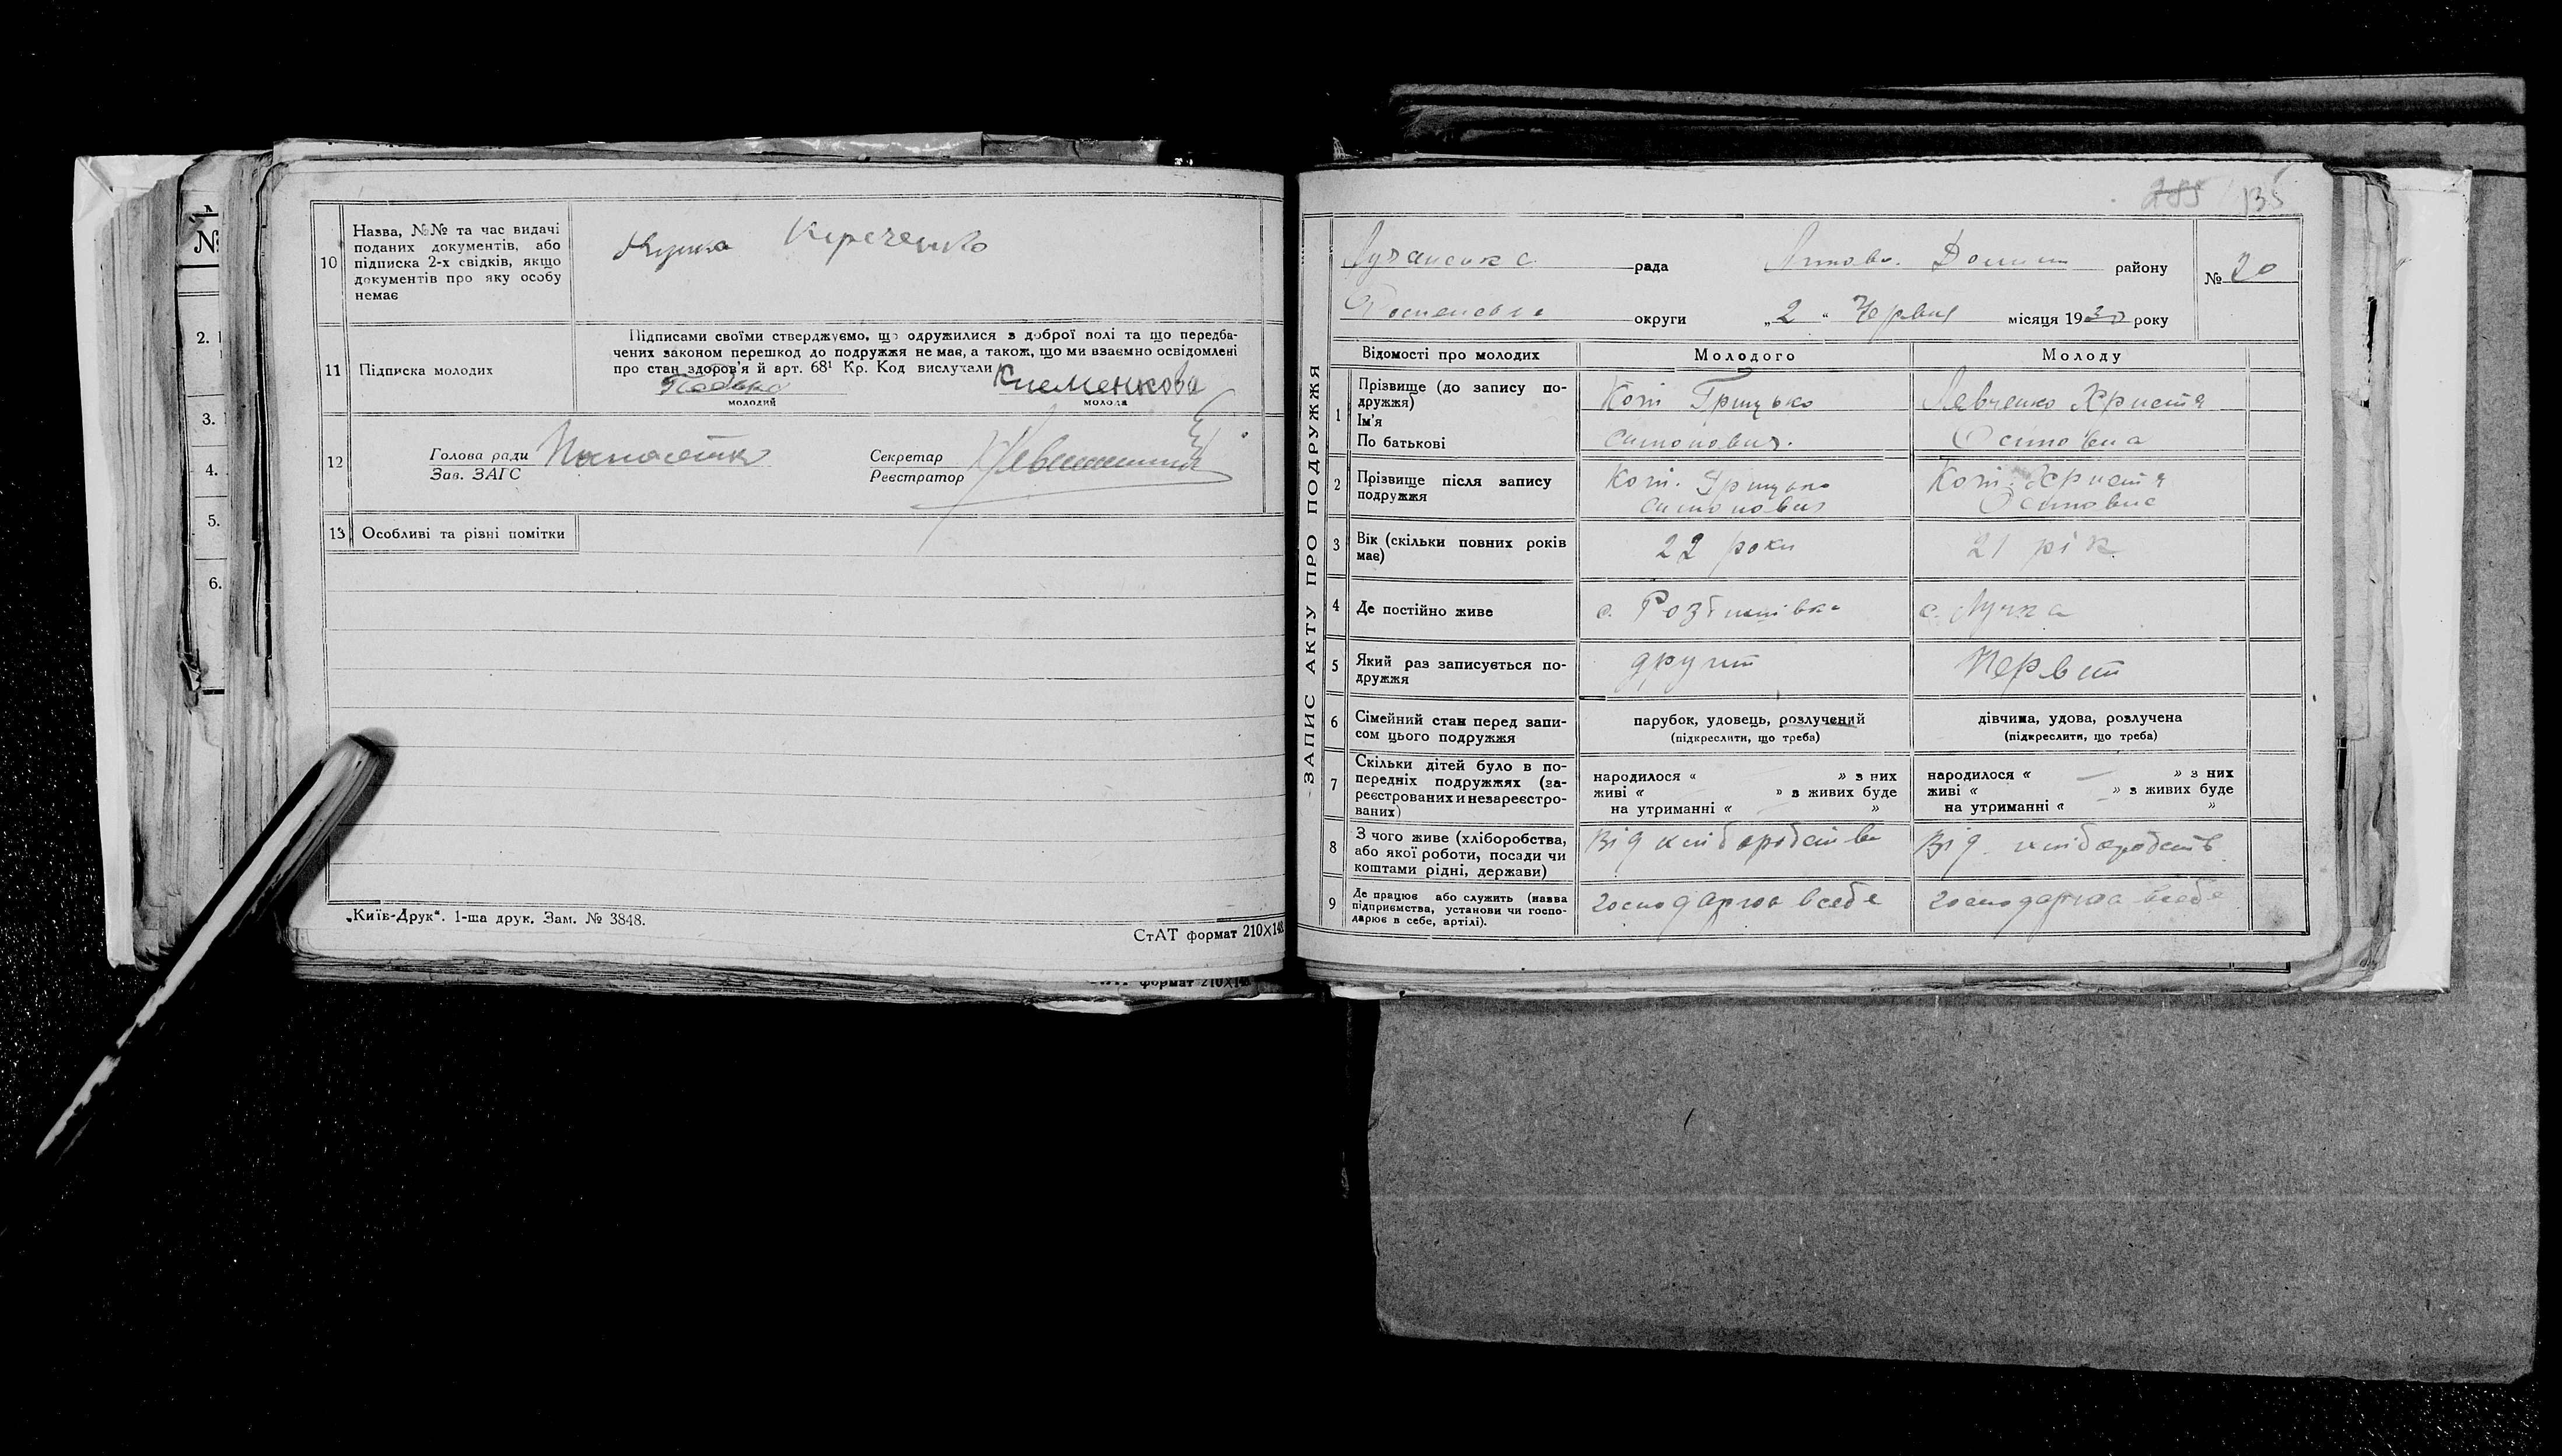 10
Назва, №№ та час видачі
поданих документів, або
підписка 2-х свідків, якщо
документів про яку особу
немає
11
Підписка молодих
Підписами своїми стверджуємо, що одружилися з доброї волі та що передба-
чених законом перешкод до подружжя не має, а також, що ми взаємно освідомлені
про стан здоров'я й арт. 68¹ Кр. Код вислухали
Клеменкова
молодий
молода
12
Голова ради
Зав. ЗАГС
Секретар
Реєстратор
13
Особливі та різні помітки
„Київ-Друк“. 1-ша друк. Зам. № 3848.
СтАТ формат 210×148
формат 210×148
№
2.
3.
4.
5.
6.
285 135
рада
району
№ 20
округи „2“ Червня місяця 1930 року
ЗАПИС АКТУ ПРО ПОДРУЖЖЯ
Відомості про молодих
Молодого
Молоду
1
Прізвище (до запису по-
дружжя)
Ім'я
По батькові
Кот Грицько
Левченко Христя
2
Прізвище після запису
подружжя
Кот. Грицько
Кот. Христя
3
Вік (скільки повних років
має)
22 роки
21 рік
4
Де постійно живе
с. Розбишівка
с. Лучка
5
Який раз записується по-
дружжя
другий
Первий
6
Сімейний стан перед запи-
сом цього подружжя
парубок, удовець, розлучений
(підкреслити, що треба)
дівчина, удова, розлучена
(підкреслити, що треба)
7
Скільки дітей було в по-
передніх подружжях (за-
реєстрованих и незареєстро-
ваних)
народилося « » з них
живі « » з живих буде
на утриманні « »
народилося « — » з них
живі « » з живих буде
на утриманні « »
8
З чого живе (хліборобства,
або якої роботи, посади чи
коштами рідні, держави)
Від хліборобства
Від хліборобств
9
Де працює або служить (назва
підприємства, установи чи госпо-
дарює в себе, артілі).
господарюа всебе
господарюа всебе